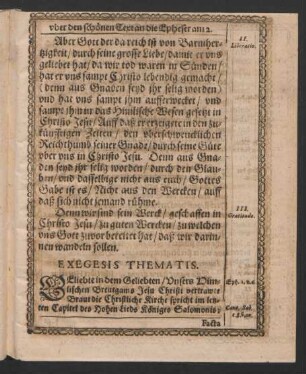 vber den schönen Text an die Epheser am 2.
Aber Gott der da reich ist von Barmher-
tzigkeit / durch seine grosse Liebe / damit er vns
geliebet hat / da wir tod waren in Sünden /
hat er vns sampt Christo lebendig gemacht /
(denn aus Gnaden seyd jhr selig worden)
vnd hat vns sampt jhm aufferwecket / vnd
sampt jhm in das Himlische Wesen gesetzt in
Christo Jesu / Auff daß er erzeigete in den zu-
künfftigen Zeiten / den vberschwencklichen
Reichthumb seiner Gnade / durch seine Güte
vber vns in Christo Jesu. Denn aus Gna-
den seyd jhr selig worden / durch den Glau-
ben / vnd dasselbige nicht aus euch / Gottes
Gabe ist es / Nicht aus den Wercken / auff
daß sich nicht jemand rühme.
Denn wir sind sein Werck / geschaffen in
Christo Jesu / zu guten Wercken / zu welchen
vns Gott zuvor bereitet hat / daß wir darin-
nen wandeln sollen.
EXEGESIS THEMATIS.
GEliebte in dem Geliebten / Vnsers Him-
lischen Breutgams Jesu Christi vertrawte
Braut die Christliche Kirche spricht im fei-
ten Capitel des Hohen Lieds Königes Salomonis:
Facta
II.
III.
Eph. 1. v. 6.
Cant. Sal.